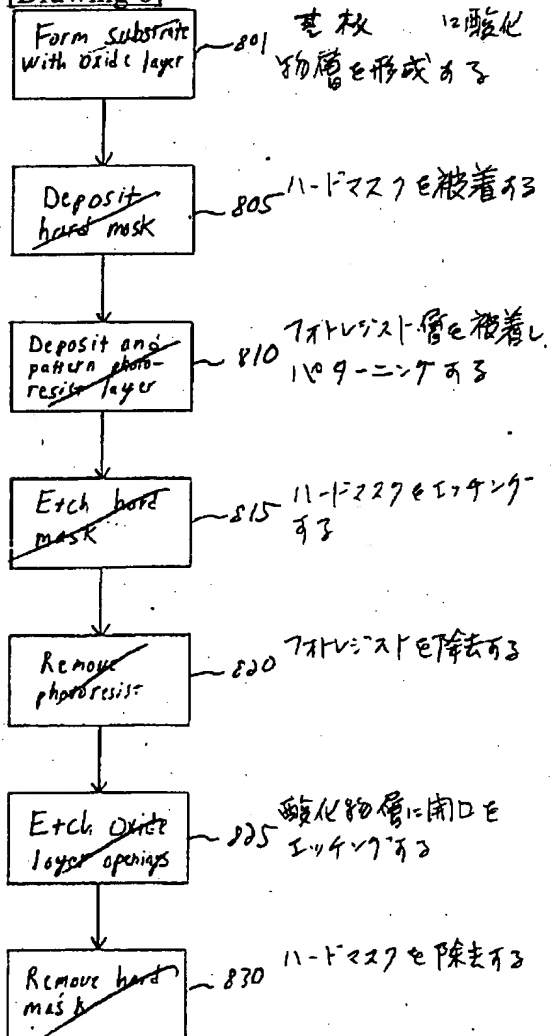 Form substrate
with oxide layer
801
基板 に酸化
物層を形成する
Deposit
hard mask
805
ハードマスクを被着する
Deposit and
pattern photo-
resist layer
810
フォトレジスト層を被着し
パターニングする
Etch hard
mask
815
ハードマスクをエッチング
する
Remove
photoresist
820
フォトレジストを除去する
Etch oxide
layer openings
825
酸化物層に開口を
エッチングする
Remove hard
mask
830
ハードマスクを除去する